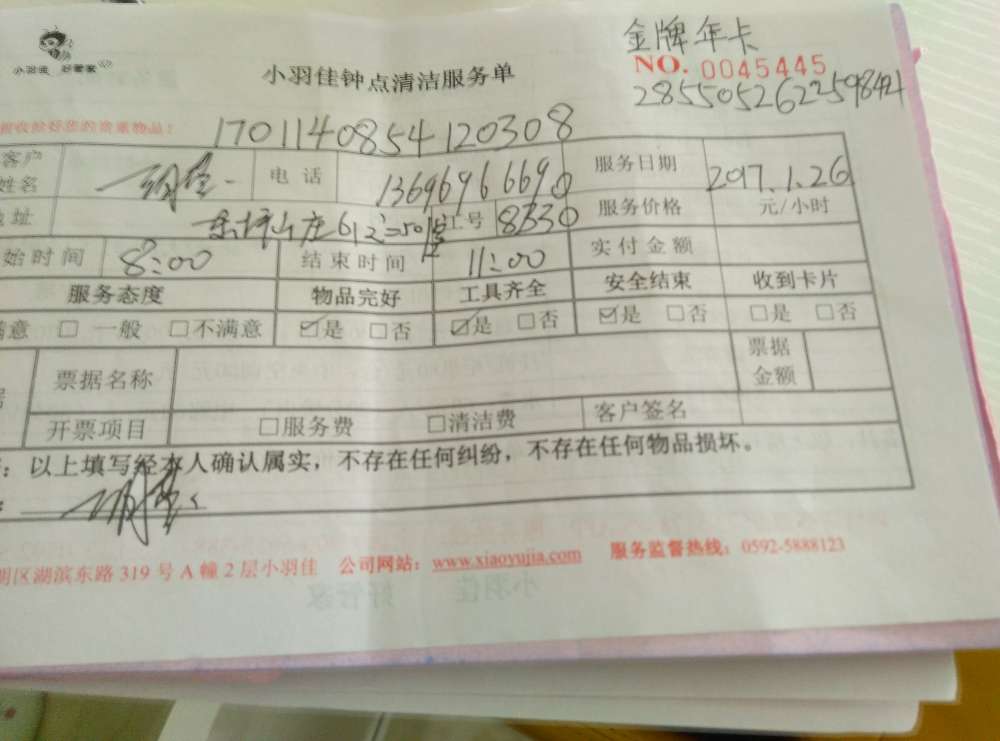 金牌年卡
小羽佳 好管家
小羽佳钟点清洁服务单
NO. 0045445
2855052622598424
请收拾好您的贵重物品!
1701140854120308
客户姓名 电话 13696966690 服务日期 2017.1.26
地址 工号 8330 服务价格 元/小时
始时间 8:00 结束时间 11:00 实付金额
服务态度 物品完好 工具齐全 安全结束 收到卡片
满意 □ 一般 □不满意 ☑是 □否 ☑是 □否 ☑是 □否 □是 □否
票据名称 票据金额
开票项目 □服务费 □清洁费 客户签名
:以上填写经本人确认属实,不存在任何纠纷,不存在任何物品损坏。
明区湖滨东路 319 号 A 幢 2 层小羽佳 公司网站:www.xiaoyujia.com 服务监督热线:0592-5888123